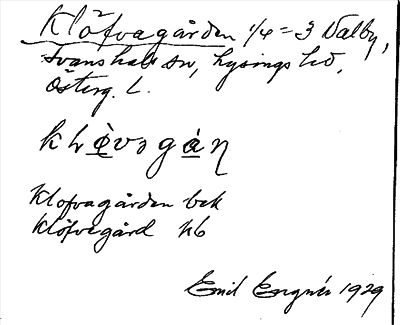 Klöfvagården 1/4 = 3 Valby,
Svanshals sn, Lysings hd,
Österg. L.
Klofvagården bek
Klöfvegård hb
Emil 1929